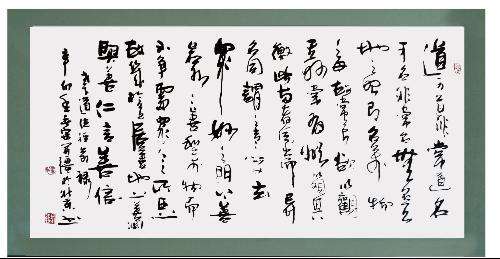 道可道非常道名
可名非常名無名天
地之始有名萬物
之母故常無欲以觀
其妙常有欲以觀其
徼此兩者同出而異
名同謂之玄
眾妙之門上善
若水水善利萬物而
不爭處眾人之所惡
故幾於道居善地心善淵
與善仁言善信
老子道德經節錄
辛卯年 於北京